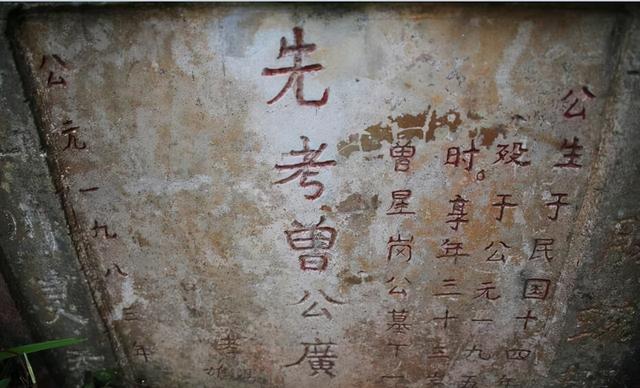 公生于民国十四年
殁于公元一九五
时。享年三十三
曾星岗公墓下一
先考曾公廣
孝
公元一九八三年